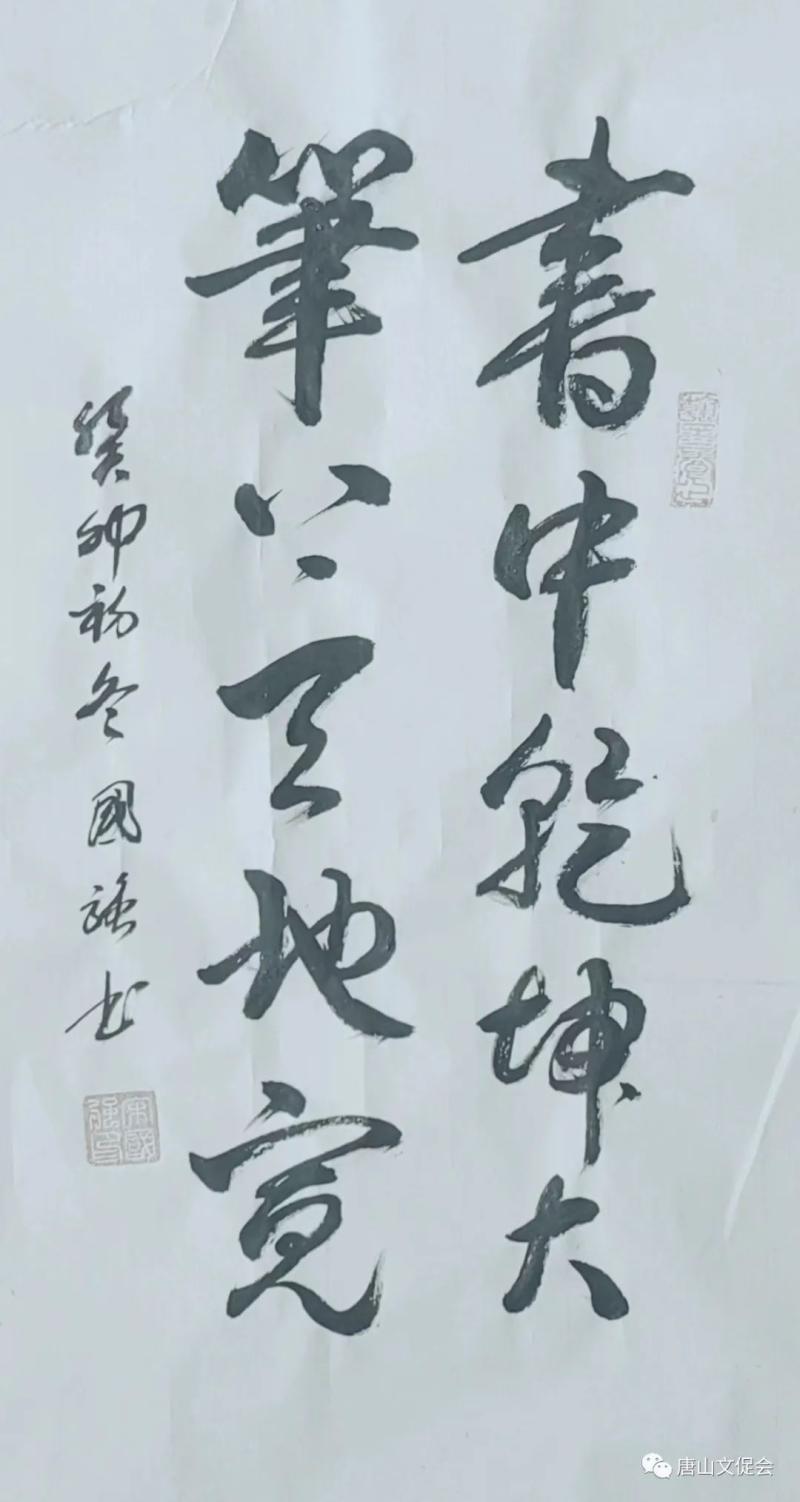 書中乾坤大
筆下天地寬
癸卯初冬國強书
宋國強印
唐山文促会